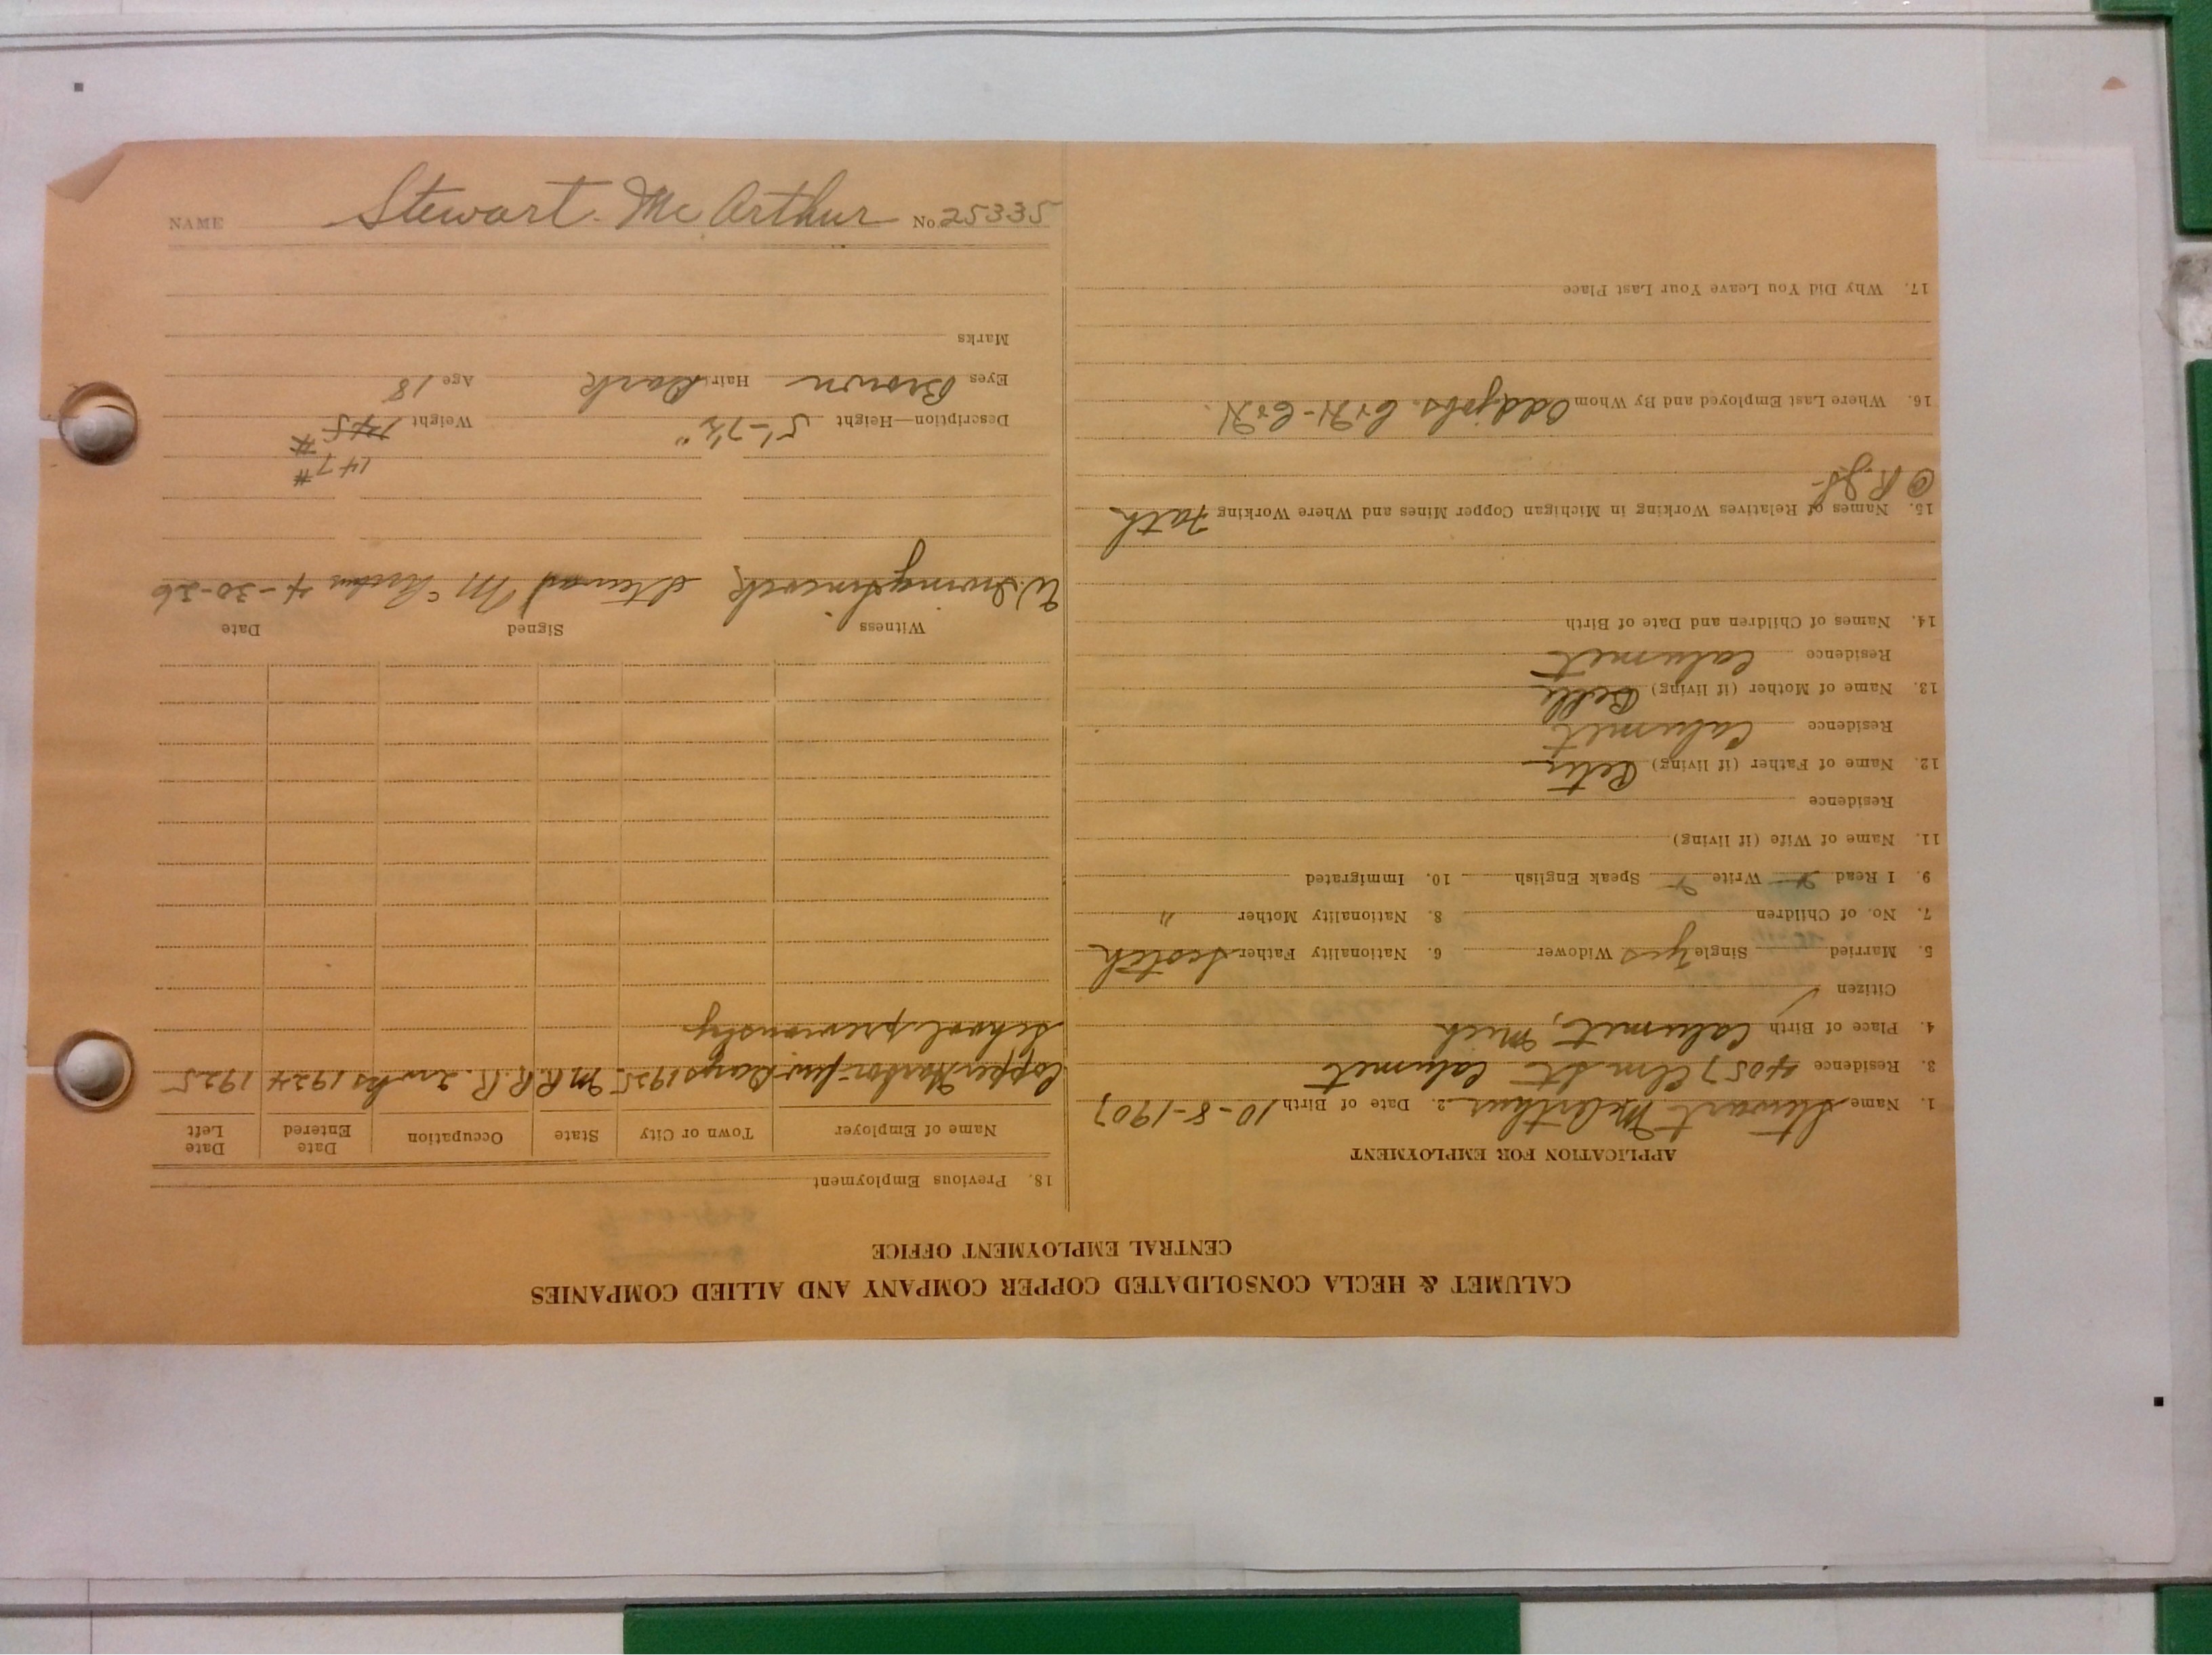 NAME Stewart McArthur No. 25335
CALUMET & HECLA CONSOLIDATED COPPER COMPANY AND ALLIED COMPANIES
CENTRAL EMPLOYMENT OFFICE
APPLICATION FOR EMPLOYMENT
1. Name Stewart McArthur 2. Date of Birth 10-8-1907
3. Residence 4057 Elm St Calumet
4. Place of Birth Calumet, Mich
Citizen ✓
5. Married Single yes Widower 6. Nationality Father Scotch
7. No. of Children 8. Nationality Mother "
9. I Read Write Speak English 10. Immigrated
11. Name of Wife (if living)
Residence
12. Name of Father (if living) Peter
Residence Calumet
13. Name of Mother (if living) Belle
Residence Calumet
14. Names of Children and Date of Birth
15. Names of Relatives Working in Michigan Copper Mines and Where Working Fath
@
16. Where Last Employed and By Whom Odd jobs. C&H - C&H.
17. Why Did You Leave Your Last Place
18. Previous Employment
Name of Employer Town or City State Occupation Date Entered Date Left
Copper Harbor - few Days 1925 M.R.R.R. 2 wks 1924 1925
School previously
Witness Signed Date
W. Stewart McArthur 4-30-26
147#
Description—Height 5'-7½" Weight 145#
Eyes Brown Hair Dark Age 18
Marks